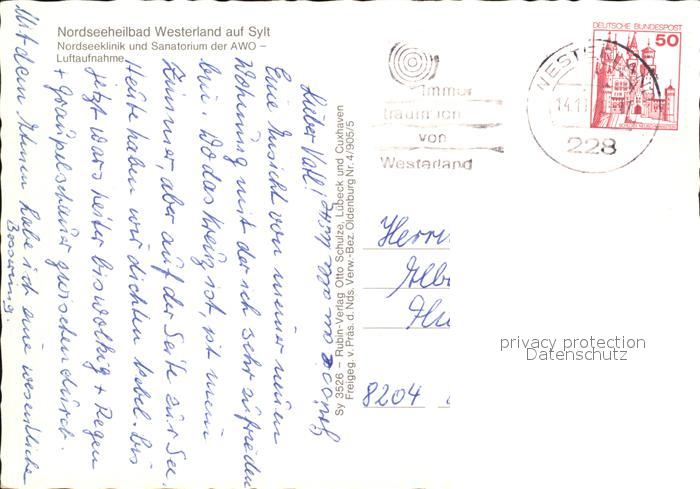 Nordseeheilbad Westerland auf Sylt
Nordseeklinik und Sanatorium der AWO –
Luftaufnahme
Lieber Vati!
Eine Ansicht von meiner neuen
Wohnung mit der ich sehr zufrieden
bin. Wo das Kreuz ist, ist mein
Zimmer, aber auf der Seite zur See.
Heute haben wir dichten Nebel. Bis
jetzt wars heiter bis wolkig + Regen
+ Graupelschauer zwischendurch.
Mit dem Ohren habe ich eine wesentliche
Besserung.
Sy 3526 – Rubin-Verlag Otto Schulze, Lübeck und Cuxhaven
Freigeg. v. Präs. d. Nds. Verw.-Bez. Oldenburg Nr. 4/905/5
immer
träum ich
von
Westerland
14.1
228
DEUTSCHE BUNDESPOST
50
Herrn
Alb
8204
privacy protection
Datenschutz